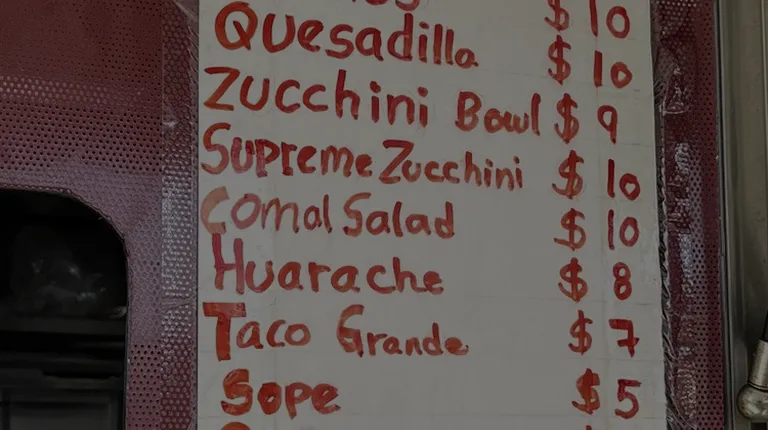 $ 10
Quesadilla $ 10
Zucchini Bowl $ 9
Supreme Zucchini $ 10
Comal Salad $ 10
Huarache $ 8
Taco Grande $ 7
Sope $ 5